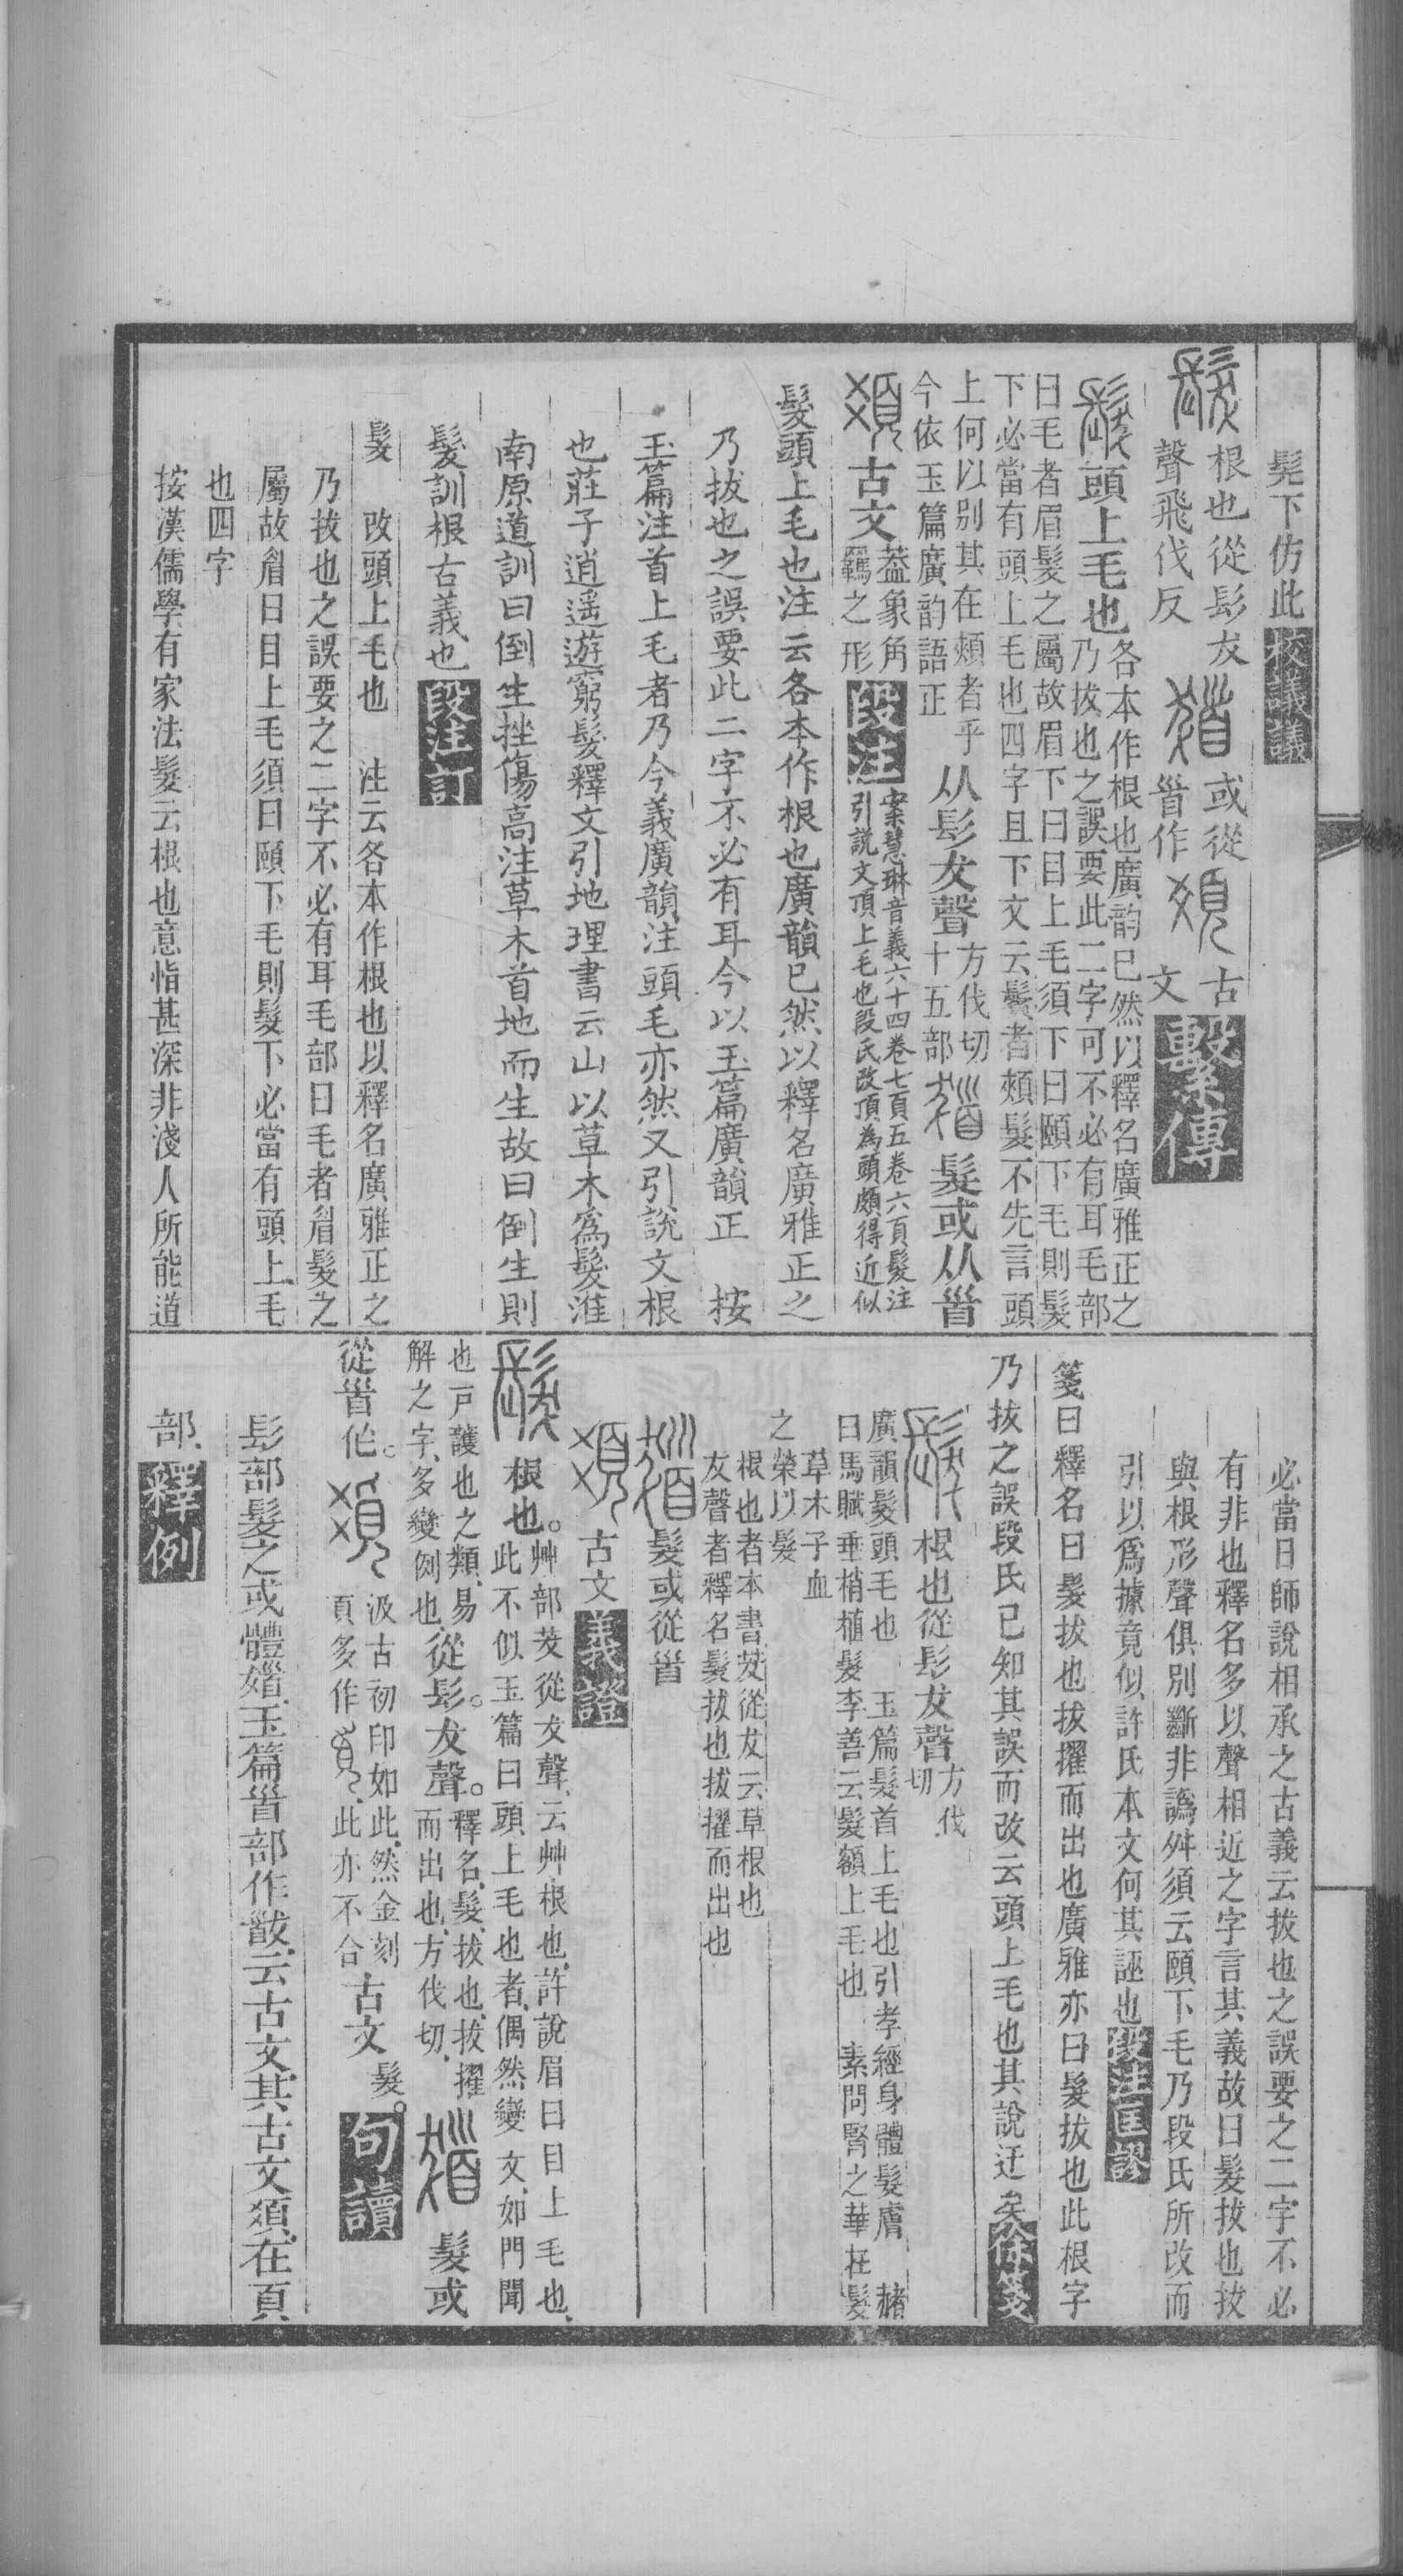 髡下仿此校議議
髮根也從髟犮
聲飛伐反
䯋或從
𩠐作
𩑛古
文
繫傳
髮頭上毛也
各本作根也廣韵已然以釋名廣雅正之
乃拔也之誤要此二字可不必有耳毛部
曰毛者眉髮之屬故眉下曰目上毛須下曰頤下毛則髮
下必當有頭上毛也四字且下文云鬢者頰髮不先言頭
上何以別其在頰者乎
今依玉篇廣韵語正
从髟犮聲
方伐切
十五部
髮或从𩠐
古文
葢象角
羈之形
段注
案慧琳音義六十四卷七頁五卷六頁髮注
引説文頂上毛也段氏改頂為頭頗得近似
髮頭上毛也注云各本作根也廣韻已然以釋名廣雅正之
乃拔也之誤要此二字不必有耳今以玉篇廣韻正 按
玉篇注首上毛者乃今義廣韻注頭毛亦然又引說文根
也莊子逍遥遊窮髮釋文引地理書云山以草木爲髮淮
南原道訓曰倒生挫傷高注草木首地而生故曰倒生則
髮訓根古義也段注訂
髮 改頭上毛也 注云各本作根也以釋名廣雅正之
乃拔也之誤要之二字不必有耳毛部曰毛者眉髮之
屬故眉曰目上毛須曰頤下毛則髮下必當有頭上毛
也四字
按漢儒學有家法髮云根也意恉甚深非淺人所能道
必當日師說相承之古義云拔也之誤要之二字不必
有非也釋名多以聲相近之字言其義故曰髮拔也拔
與根形聲俱別斷非譌舛須云頤下毛乃段氏所改而
引以爲據竟似許氏本文何其誣也段注匡謬
箋曰釋名曰髮拔也拔擢而出也廣雅亦曰髮拔也此根字
乃拔之誤段氏已知其誤而改云頭上毛也其說迂矣徐箋
髮根也從髟犮聲
方伐
切
廣韻髮頭毛也 玉篇髮首上毛也引孝經身體髮膚 赭
白馬賦垂梢植髮李善云髮額上毛也 素問腎之華在髮
草木子血
之榮以髮
根也者本書茇從犮云草根也
犮聲者釋名髮拔也拔擢而出也
髮或從𩠐
古文義證
髮根也。
艸部茇從犮聲、云艸根也、許說眉曰目上毛也、
此不似玉篇曰頭上毛也者、偶然變文、如門聞
也戸護也之類、易
解之字、多變例也、
從髟。犮聲。
釋名、髮、拔也、拔擢
而出也、方伐切、
髮或
從𩠐作。
汲古初印如此、然金刻
頁多作 、此亦不合
古文
髮。
句讀
髟部髮之或體䯋、玉篇𩠐部作䯋、云古文、其古文𩑛、在頁
部、釋例